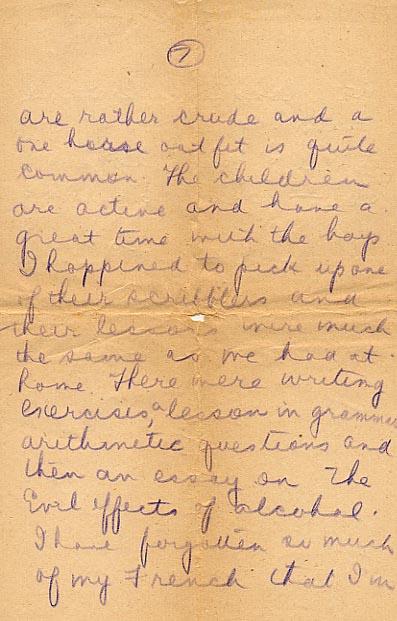 7
are rather crude and a
one horse outfit is quite
common. The children
are active and have a
great time with the boys
I happined to pick up one
of their scribblers and
their lessons were much
the same as we had at
home. There were writing
exercises, a lesson in grammer
arithmetic questions and
then an essay on The
Evil effects of alcohol.
I have forgotten so much
of my French that I'm